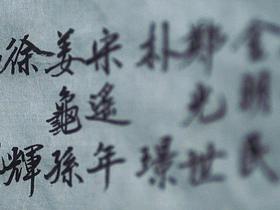 金民
鄭光世
朴璟
宋遙年
姜龜孫
徐輝